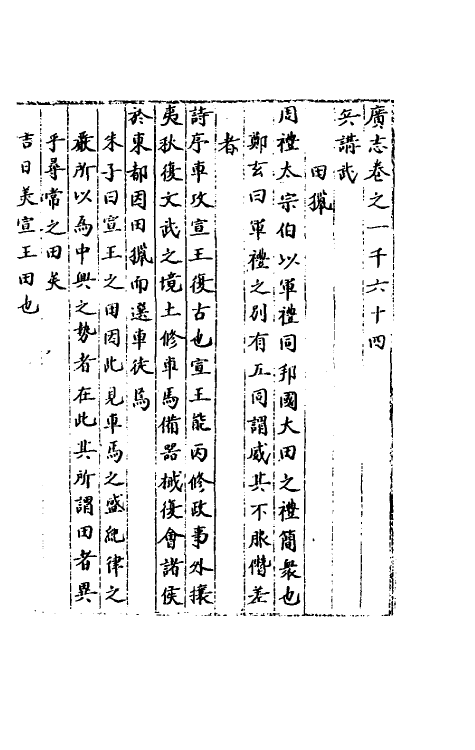 廣志卷之一千六十四
兵講武
田獵
周禮太宗伯以軍禮同邦國大田之禮簡衆也
鄭玄曰軍禮之別有五同謂威其不服僭差
者
詩序車攻宣王復古也宣王能內修政事外攘
夷狄復文武之境土修車馬備器械復會諸侯
於東都因田獵而選車徒焉
朱子曰宣王之田因此見車馬之盛紀律之
嚴所以爲中興之勢者在此其所謂田者異
乎尋常之田矣
吉日美宣王田也